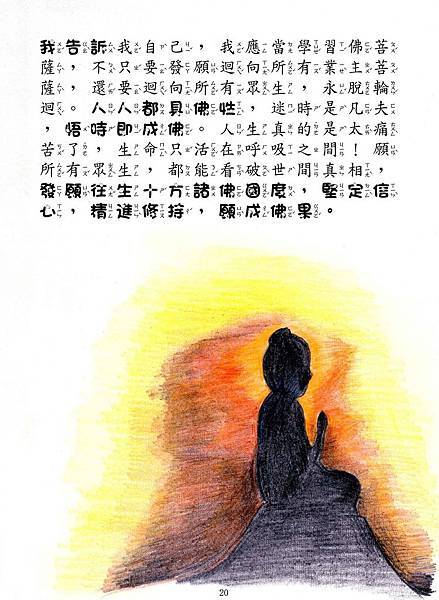 我告訴我自己，我應當學習佛菩
薩，不只要發願迴向所有業主菩
薩，還要迴向所有眾生，永脫輪
迴。人人都具佛性，迷時是凡夫
，悟時即成佛。人生真的是太痛
苦了，生命只活在呼吸之間！願
所有眾生，都能看破世間真相，
發願往生十方諸佛國度，堅定信
心，精進修持，願成佛果。
20